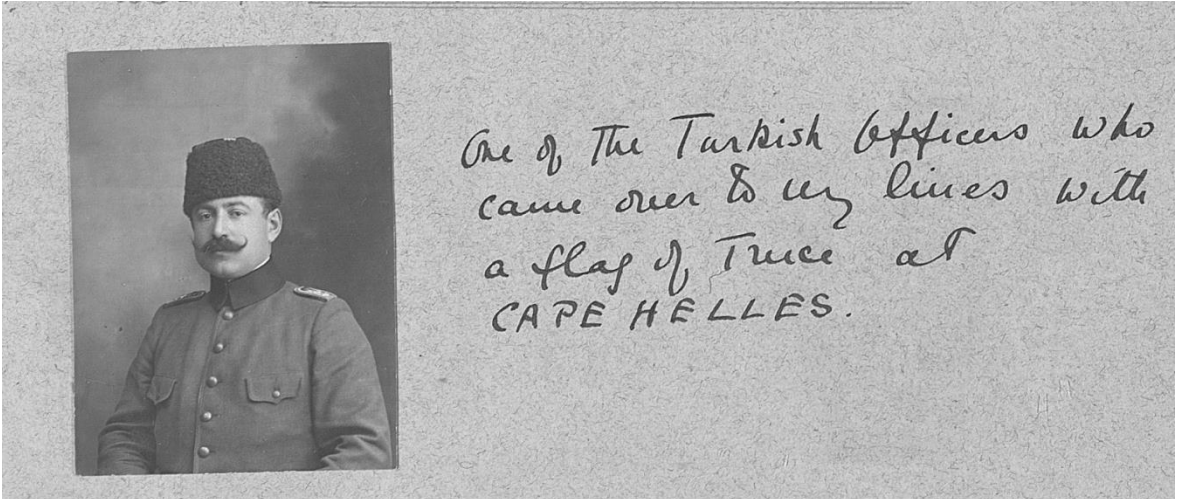 One of The Turkish Officers who
came over to my lines with
a flag of Truce at
CAPE HELLES.